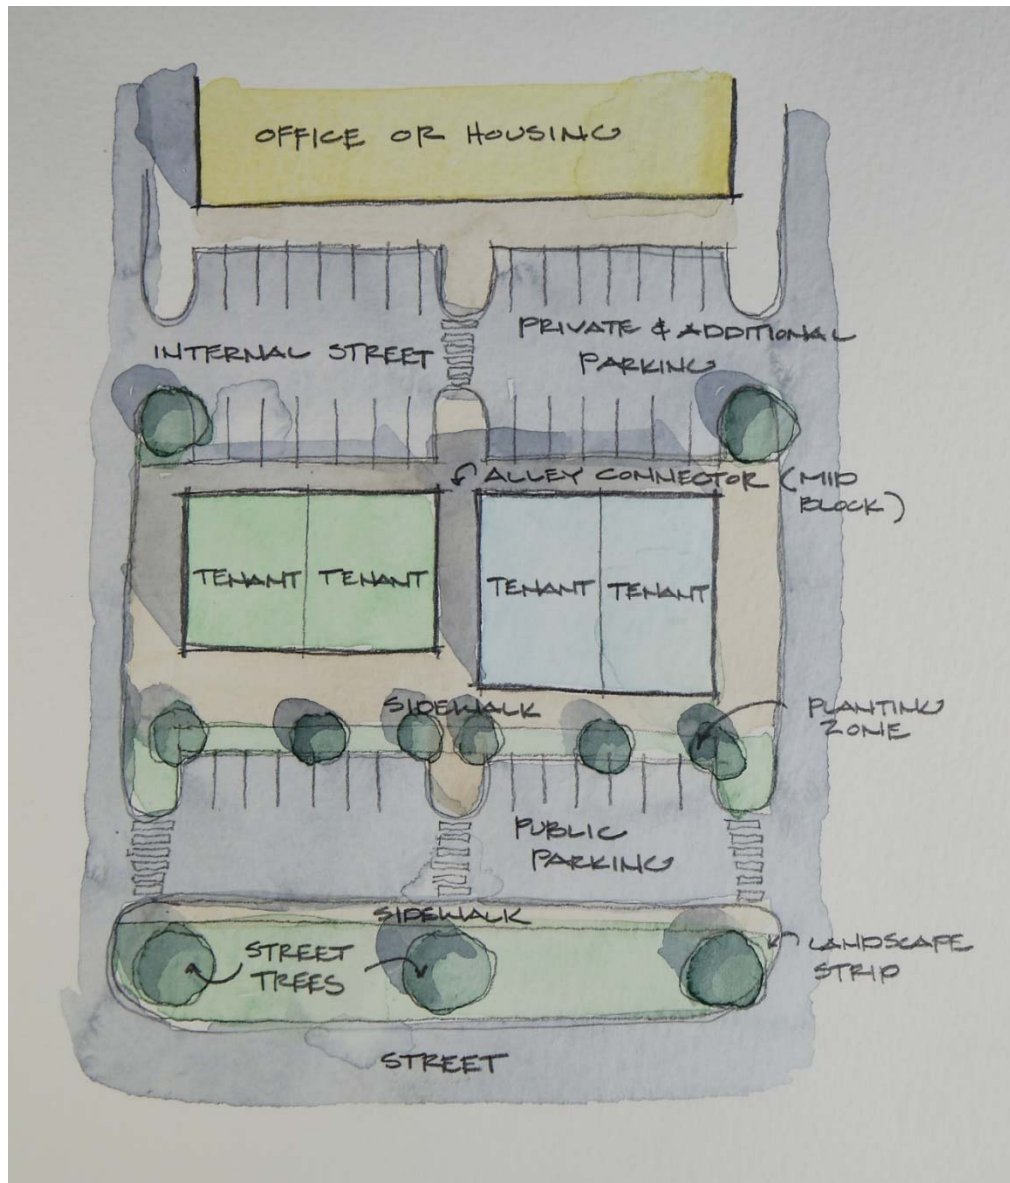 OFFICE OR HOUSING
PRIVATE & ADDITIONAL
PARKING
INTERNAL STREET
ALLEY CONNECTOR (MID
BLOCK)
TENANT TENANT
TENANT TENANT
SIDEWALK
PLANTING
ZONE
PUBLIC
PARKING
SIDEWALK
STREET
TREES
LANDSCAPE
STRIP
STREET